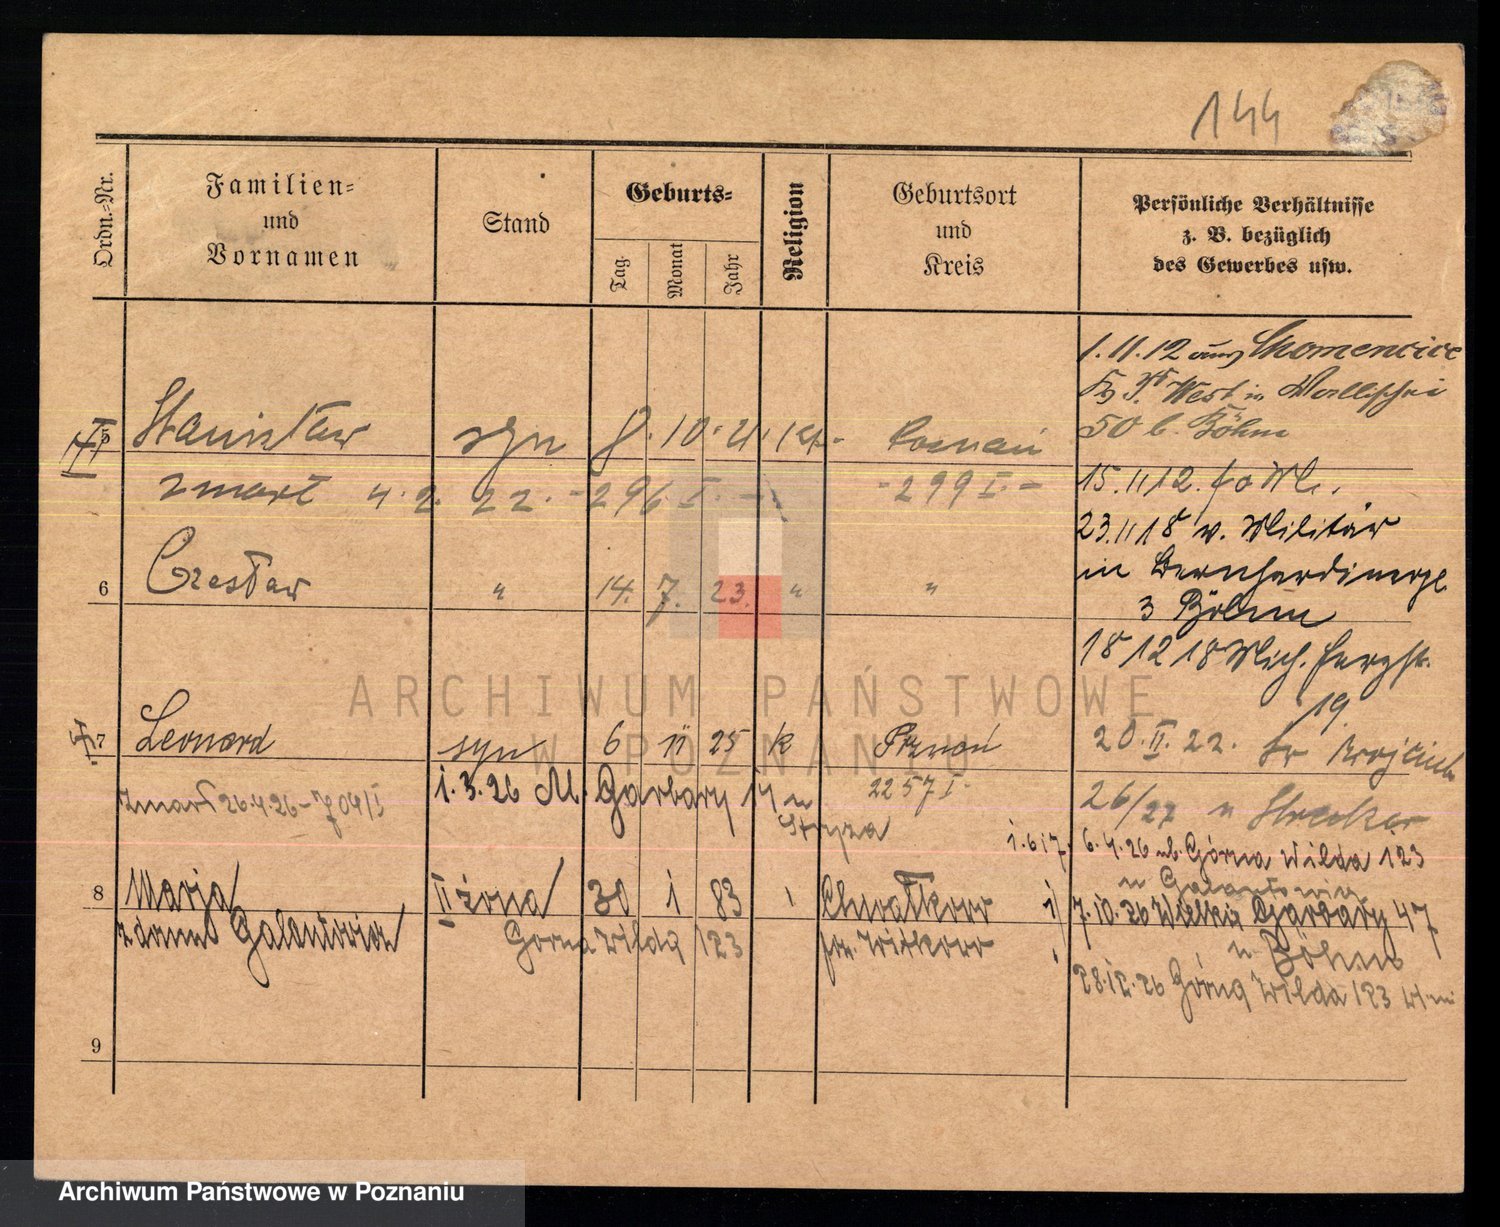 144
Ordn.-Nr.
Familien-
und
Vornamen
Stand
Geburts-
Tag
Monat
Jahr
Religion
Geburtsort
und
Kreis
Persönliche Verhältnisse
z. B. bezüglich
des Gewerbes usw.
1.11.12
50 b. Böhm
5 Stanisław syn 8. 10. 21. kt. Poznań
zmarł 4. 2. 22. - 296 I. - - 299 I. -
15.11.12.
23.11.18 v. Militär
in Bernhardinerpl.
3 Böhm
6 Czesław " 14. 7. 23. " "
18 12 18
19.
7 Leonard syn 6 11 25 k Poznań
20. II. 22.
1.3.26 M. Garbary 14 u 2257 I.
zmarł 26.4.26 - 704/I
26/27 u
1.617. 6.4.26 Górna Wilda 123
u Galantowicz
8 Marja II żona 30 1 83
7.10.26 Wielkie Garbary 47
z domu Galantowicz
Górna Wilda 123
pow. Witkowo
u Böhm
28.12.26 Górna Wilda 123
9
ARCHIWUM PAŃSTWOWE
W POZNANIU
Archiwum Państwowe w Poznaniu